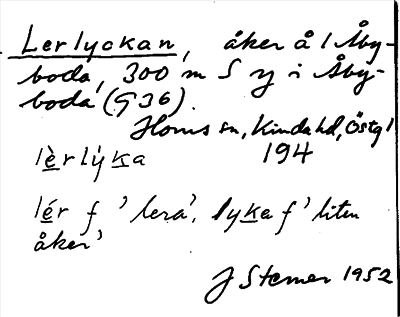 Lerlyckan, åker å 1 Åby-
boda, 300 m S y i Åby-
boda (G 36).
Horns sn, Kinda hd, Östg l
lèrlýka 194
lér f 'lera', lyka f 'liten
åker'
J Sterner 1952